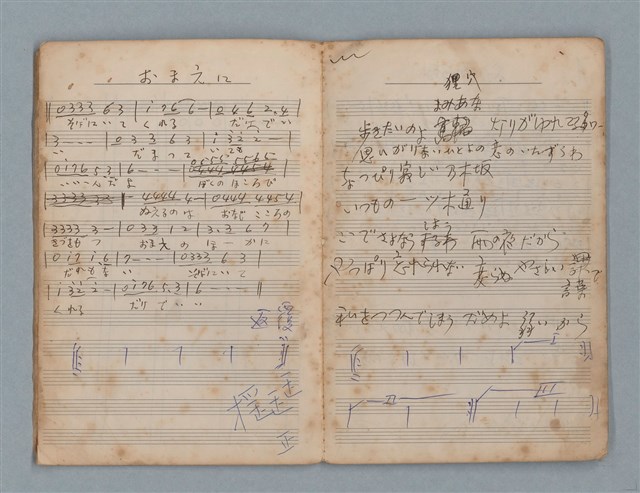 おまえに
‖0 3 3 3 6 3 | i 7 6 6 — | 0 4 6 2. 4 |
そばにいて くれる だけでい
3 — — — | 0 3 3 6 3 | i 3 2 2 — |
い だまって いても
0 i 7 6 5. 3 | 6 — — —
いいんだよ ぼくのほころび
ぬえるのは おなじ こころの
3 3 3 3 3 — | 0 3 3 1 2 | 3. 3 6 7 |
きずをもつ おまえ の ほーかに
0 i 7 i 6 | 7 — — — | 0 3 3 3 6 3 |
だれもない そばにいて
| i 3 2 2 — | 0 i 7 6 5. 3 | 6 — — — ‖
くれる だけでいい
狸穴
まみあな
歩きたいのよ 高輪 灯りがゆれてる
思いがけない人との 恋のいたずらね
なっぴり寂しい 乃木坂
いつもの一ツ木通り
ここでさよなら しよう 雨の夜だから
やっぱり忘れられない 変らぬ やさしい 言葉で
私をつつんでしまう だめよ 弱いから
I
II
III